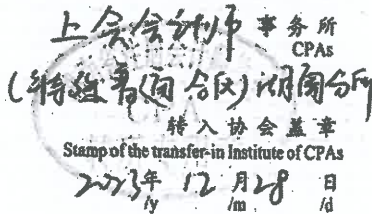 上会会计师事务所
CPAs
(特殊普通合伙)湖南分所
转入协会盖章
Stamp of the transfer-in Institute of CPAs
2023年 12月28日
/y /m /d